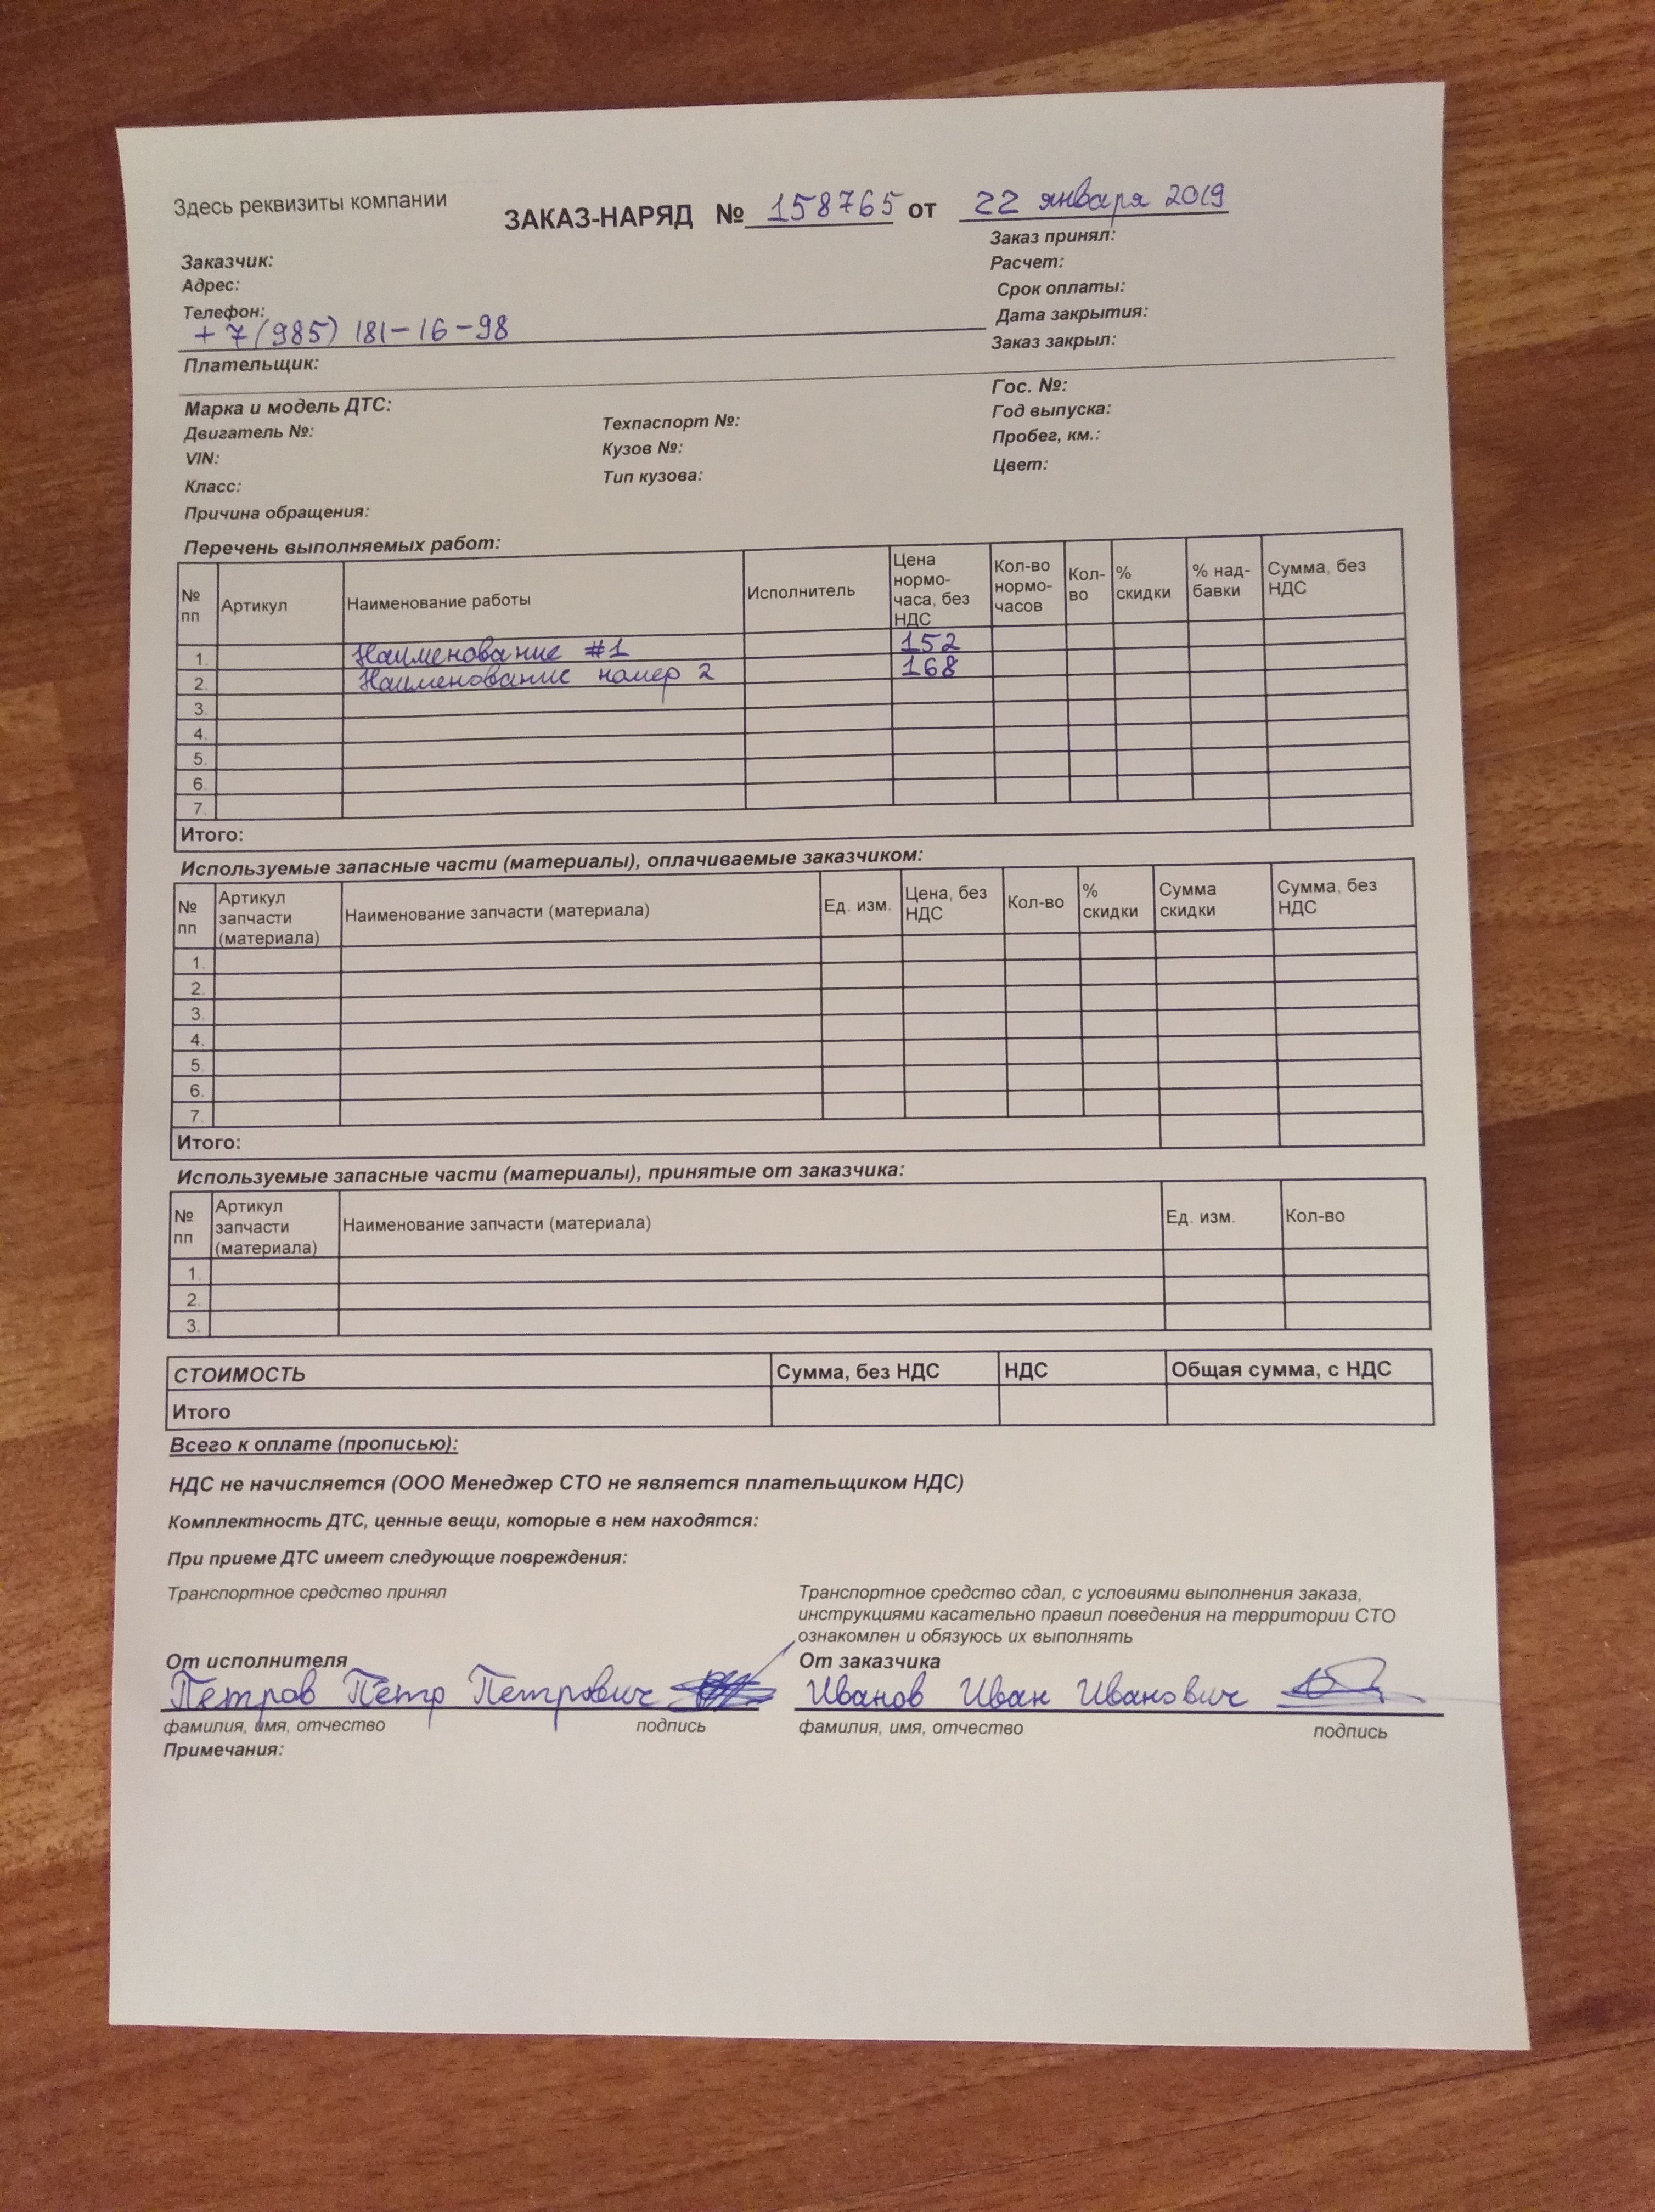 Здесь реквизиты компании
ЗАКАЗ-НАРЯД № 158765 от 22 января 2019
Заказчик:
Адрес:
Телефон:
+7(985) 181-16-98
Плательщик:
Заказ принял:
Расчет:
Срок оплаты:
Дата закрытия:
Заказ закрыл:
Марка и модель ДТС:
Двигатель №:
VIN:
Класс:
Причина обращения:
Техпаспорт №:
Кузов №:
Тип кузова:
Гос. №:
Год выпуска:
Пробег, км.:
Цвет:
Перечень выполняемых работ:
№ пп Артикул Наименование работы Исполнитель Цена нормо-часа, без НДС Кол-во нормо-часов Кол-во % скидки % над-бавки Сумма, без НДС
1. Наименование #1 152
2. Наименование номер 2 168
3.
4.
5.
6.
7.
Итого:
Используемые запасные части (материалы), оплачиваемые заказчиком:
№ пп Артикул запчасти (материала) Наименование запчасти (материала) Ед. изм. Цена, без НДС Кол-во % скидки Сумма скидки Сумма, без НДС
1.
2.
3.
4.
5.
6.
7.
Итого:
Используемые запасные части (материалы), принятые от заказчика:
№ пп Артикул запчасти (материала) Наименование запчасти (материала) Ед. изм. Кол-во
1.
2.
3.
СТОИМОСТЬ Сумма, без НДС НДС Общая сумма, с НДС
Итого
Всего к оплате (прописью):
НДС не начисляется (ООО Менеджер СТО не является плательщиком НДС)
Комплектность ДТС, ценные вещи, которые в нем находятся:
При приеме ДТС имеет следующие повреждения:
Транспортное средство принял
От исполнителя
Петров Петр Петрович
фамилия, имя, отчество подпись
Транспортное средство сдал, с условиями выполнения заказа,
инструкциями касательно правил поведения на территории СТО
ознакомлен и обязуюсь их выполнять
От заказчика
Иванов Иван Иванович
фамилия, имя, отчество подпись
Примечания: